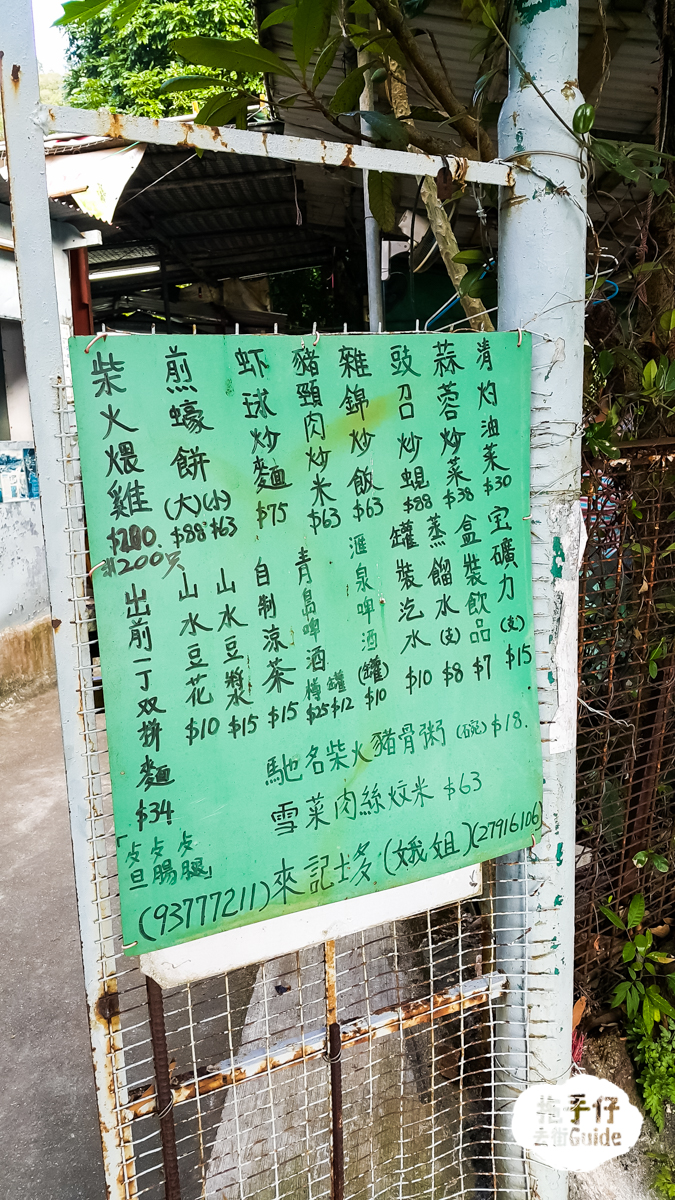 柴火煨雞
煎蠔餅 (大)$88 (小)$63
虾球炒麵 $75
豬頸肉炒米 $63
雜錦炒飯 $63
豉召炒蜆 $88
蒜蓉炒菜 $38
清灼油菜 $30
出前一丁双拼麵 $34
山水豆花 $10
山水豆漿 $15
自制涼茶 $15
青島啤酒 樽$25 罐$12
滙泉啤酒(罐) $10
罐裝汽水 $10
蒸餾水(支) $8
盒裝飲品 $7
宝礦力(支) $15
馳名柴火豬骨粥(碗)$18.
雪菜肉絲炆米 $63
(93777211)來記士多(娥姐)(27916106)
拖手仔
去街Guide